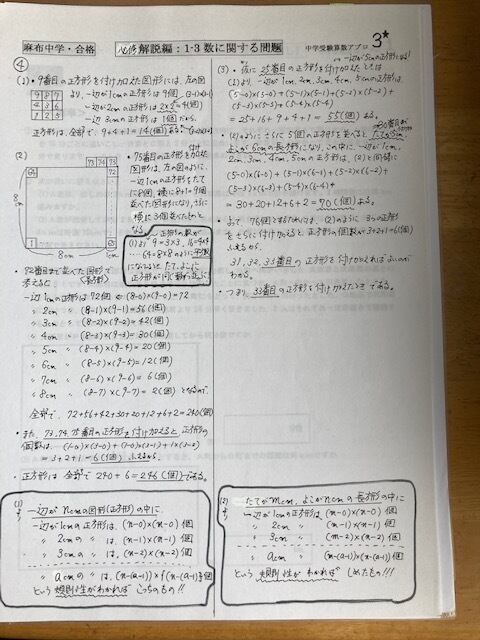 麻布中学・合格
必修 解説編:1-3 数に関する問題
中学受験算数アプロ
3*
④
(1)・9番目の正方形を付け加えた図形には、左の図
より、一辺が1cmの正方形は 9個
一辺が2cmの正方形は 2×2=4(個)
一辺が3cmの正方形は 1個 だから、
正方形は、全部で、9+4+1=14(個)ある。
9 8 7
4 3 6
1 2 5
(2)
・75番目の正方形を加えた
図形は、左の図のように、
一辺1cmの正方形をたて
に8個、横に8+1=9個
並べた図形になり、さらに
横に3個並べたものと
なる。
73 74 75
64
72
8cm
8cm
1cm
(1)より 9=3×3、16=4×4
…64=8×8のように平方数
になるとたて、よこに
正方形が同じ数ずつ並ぶ!!
・72番目まで並べた図形で
(長方形)
考えると
一辺1cmの正方形は72個 ⇐ (8-0)×(9-0)=72
〃 2cm 〃 (8-1)×(9-1)=56(個)
〃 3cm 〃 (8-2)×(9-2)=42(個)
〃 4cm 〃 (8-3)×(9-3)=30(個)
〃 5cm 〃 (8-4)×(9-4)=20(個)
〃 6cm 〃 (8-5)×(9-5)=12(個)
〃 7cm 〃 (8-6)×(9-6)=6(個)
〃 8cm 〃 (8-7)×(9-7)=2(個) となるので
全部で、72+56+42+30+20+12+6+2=240(個)
・また、73、74、75番目の正方形を付け加えると、正方形の
個数は、
=3+2+1=6(個) ふえるから
・正方形は 全部で 240+6=246(個)である。
(1)より
一辺がn cmの図形(正方形)の中に
一辺が1cmの正方形は、(n-0)×(n-0)個
〃 2cmの 〃 は、(n-1)×(n-1)個
〃 3cmの 〃 は、(n-2)×(n-2)個
〃 a cmの 〃 は、{n-(a-1)}×{n-(a-1)}個
という規則性がわかればこっちのもの!!
(3)・仮に 25番目の正方形を付け加えたときは
一辺が5cmの正方形になる!
(1)より、一辺が1cm、2cm、3cm、4cm、5cmの正方形は、
(5-0)×(5-0)+(5-1)×(5-1)+(5-2)×(5-2)
+(5-3)×(5-3)+(5-4)×(5-4)
=25+16+9+4+1=55(個) ある。
30番目の正方形
・(2)のようにさらに5個の正方形を並べると、たてが5cm
よこが6cmの長方形になり、この中に、一辺が1cm、
2cm、3cm、4cm、5cmの正方形は、(2)と同様に
(5-0)×(6-0)+(5-1)×(6-1)+(5-2)×(6-2)
+(5-3)×(6-3)+(5-4)×(6-4)
=30+20+12+6+2=70(個) ある。
・あと 76個とするためには、(2)のように 3つの正方形
をさらに付け加えると、正方形の個数が 3+2+1=6(個)
ふえるから
31、32、33番目の正方形を付け加えればよいのが
わかる。
・つまり、33番目の正方形を付け加えたときである。
(2)より
たてが m cm、よこが n cmの長方形の中に
一辺が1cmの正方形は (m-0)×(n-0)個
〃 2cm 〃 (m-1)×(n-1)個
〃 3cm 〃 (m-2)×(n-2)個
〃 a cm 〃 {m-(a-1)}×{n-(a-1)}個
という規則性がわかれば しめたもの!!!